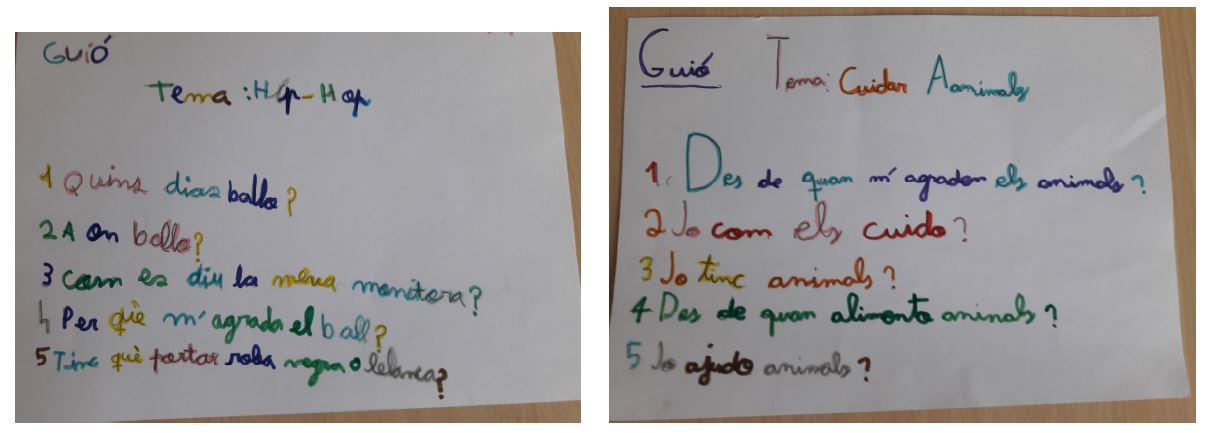 GUIÓ
Tema: Hip-Hop
1 Quins dias ballo?
2 A on ballo?
3 Com es diu la meva monitora?
4 Per què m'agrada el ball?
5 Tinc què portar roba negra o blanca?
Guió Tema: Cuidar Aanimals
1. Des de quan m'agraden els animals?
2 Jo com els cuido?
3 Jo tinc animals?
4 Des de quan alimento animals?
5 Jo ajudo animals?